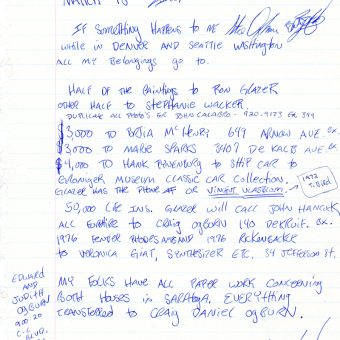 IF SOMETHING HAPPENS TO ME
WHILE IN DENVER AND SEATTLE WASHINGTON
ALL MY BELONGINGS GO TO.
HALF OF THE PAINTINGS TO RON GLAZER
OTHER HALF TO STEPHANIE WACKER.
DUPLICATE ALL PHOTO'S FOR JOHN CALABRO - 920-9173 EX 394
$3,000 TO MCHENRY 649 ARNOW AVE. BX.
$3,000 TO MARIE SPARKS 3407 DE KALB AVE. BX
$4,000 TO HANK TO SHIP CAR TO
MUSEUM CLASSIC CAR COLLECTION.
GLAZER HAS THE PHONE # OF VINCENT
1972
50,000 LIFE INS. GLAZER WILL CALL JOHN HANCOCK
ALL FURNITURE TO CRAIG OGBURN 140 DEKRUIF. BX.
1976 FENDER RHODES AND 1976 RICKENBACKER
TO VERONICA GIAT, SYNTHESIZER ETC. 34 JEFFERSON ST.
EDWARD
AND
JUDITH
OGBURN
920 20
C.C.
BLVD.
MY FOLKS HAVE ALL PAPER WORK CONCERNING
BOTH HOUSES IN SARATOGA. EVERYTHING
TRANSFERRED TO CRAIG DANIEL OGBURN.